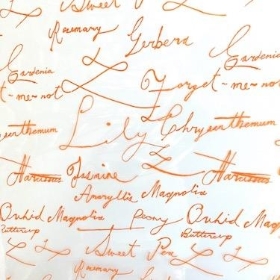 Sweet P
Rosemary Gerbera
Gardenia Gardenia
t-me-not Forget-me-not
Lily Chrysanthemum
ysanthemum
Narcissus Jasmine Narcissus
Amaryllis Magnolia
Orchid Magnolia Peony Orchid Magnolia
Buttercup Buttercup
Sweet Pea
Rosemary